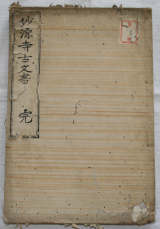 妙源寺古文書
完